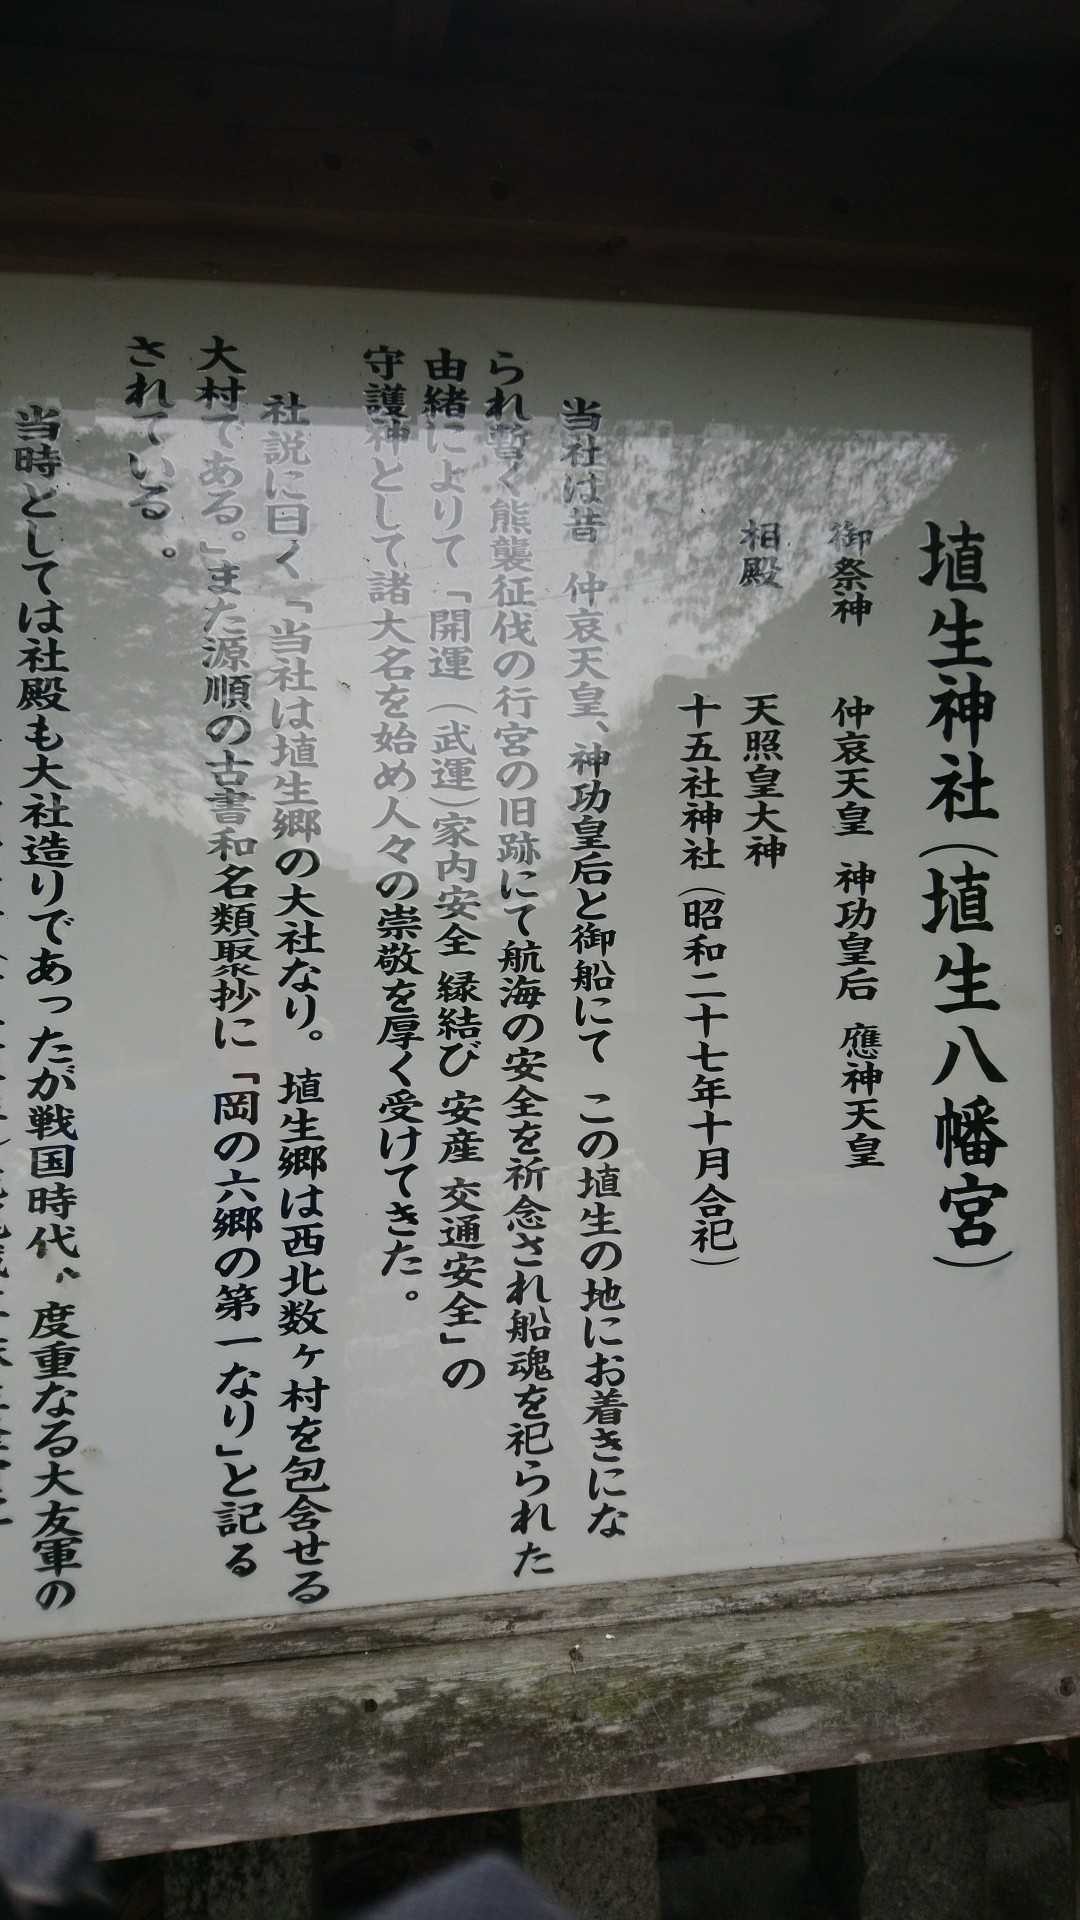 埴生神社（埴生八幡宮）
御祭神　仲哀天皇　神功皇后　應神天皇
相殿　天照皇大神
十五社神社（昭和二十七年十月合祀）
当社は昔　仲哀天皇、神功皇后と御船にて　この埴生の地にお着きにな
られ暫く熊襲征伐の行宮の旧跡にて航海の安全を祈念され船魂を祀られた
由緒によりて「開運（武運）家内安全　縁結び　安産　交通安全」の
守護神として諸大名を始め人々の崇敬を厚く受けてきた。
社説に曰く「当社は埴生郷の大社なり。埴生郷は西北数ヶ村を包含せる
大村である。」また源順の古書和名類聚抄に「岡の六郷の第一なり」と記る
されている。
当時としては社殿も大社造りであったが戦国時代、度重なる大友軍の